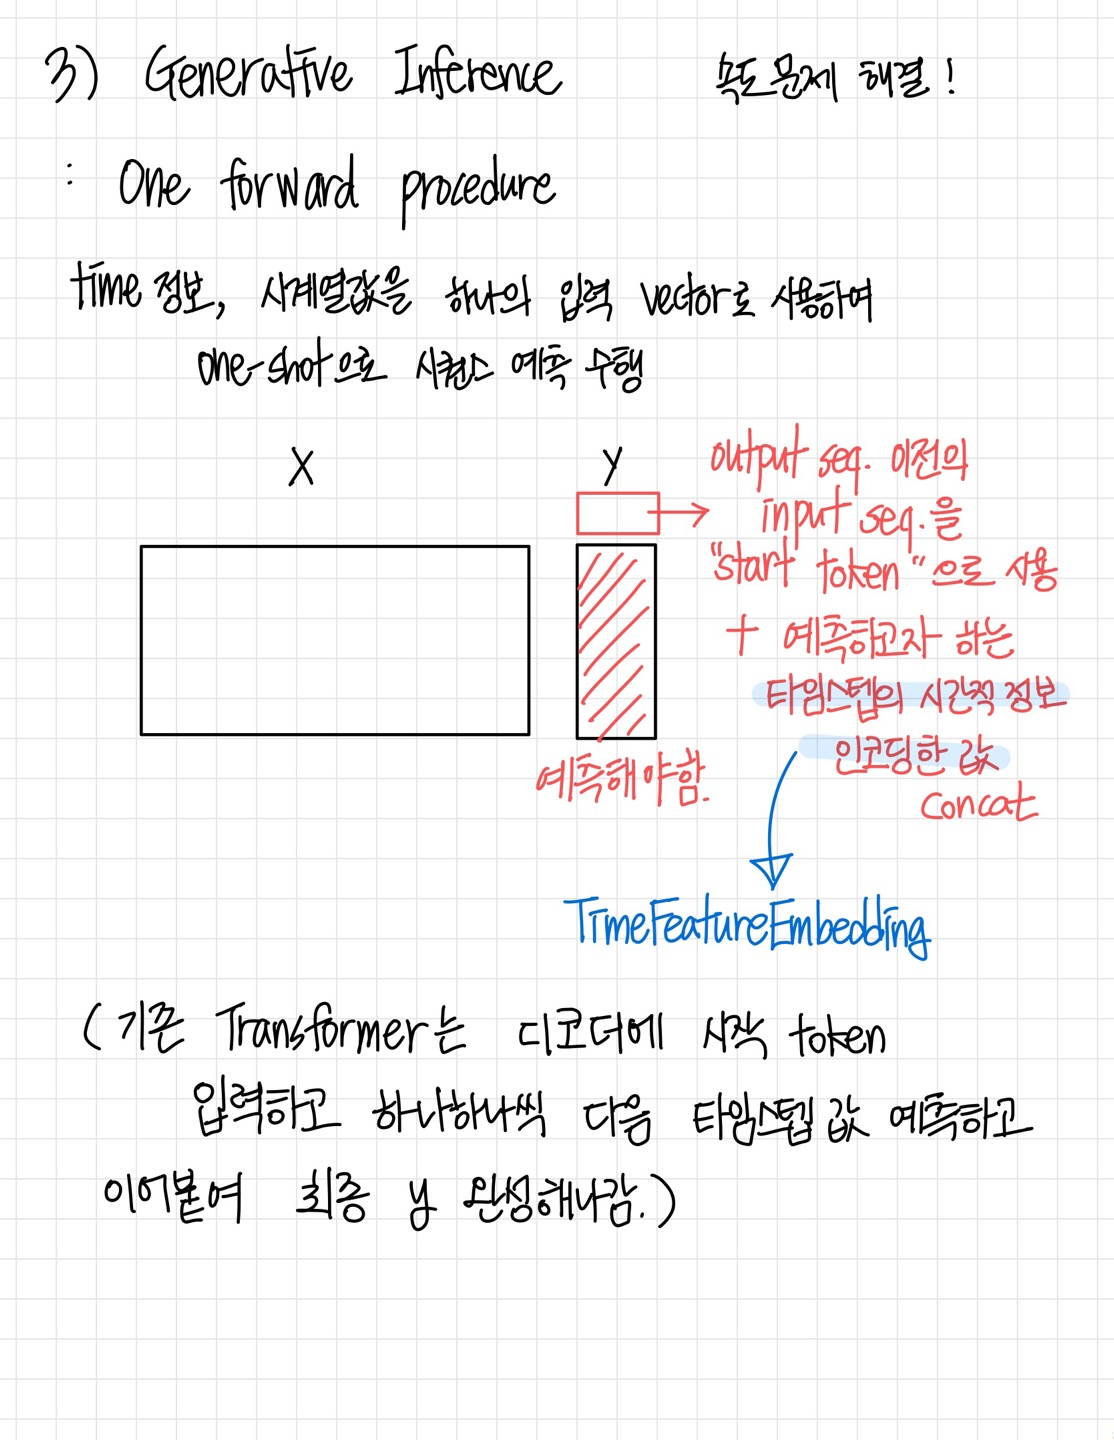 3) Generative Inference 속도 문제 해결!
: One forward procedure
time 정보, 시계열값을 하나의 입력 vector로 사용하여
one-shot으로 시퀀스 예측 수행
X
Y
output seq. 이전의
input seq.을
"start token"으로 사용
+ 예측하고자 하는
타임스텝의 시간적 정보
인코딩한 값
concat
예측해야함.
TimeFeatureEmbedding
(기존 Transformer는 디코더에 시작 token
입력하고 하나하나씩 다음 타임스텝 값 예측하고
이어붙여 최종 y 완성해나감.)